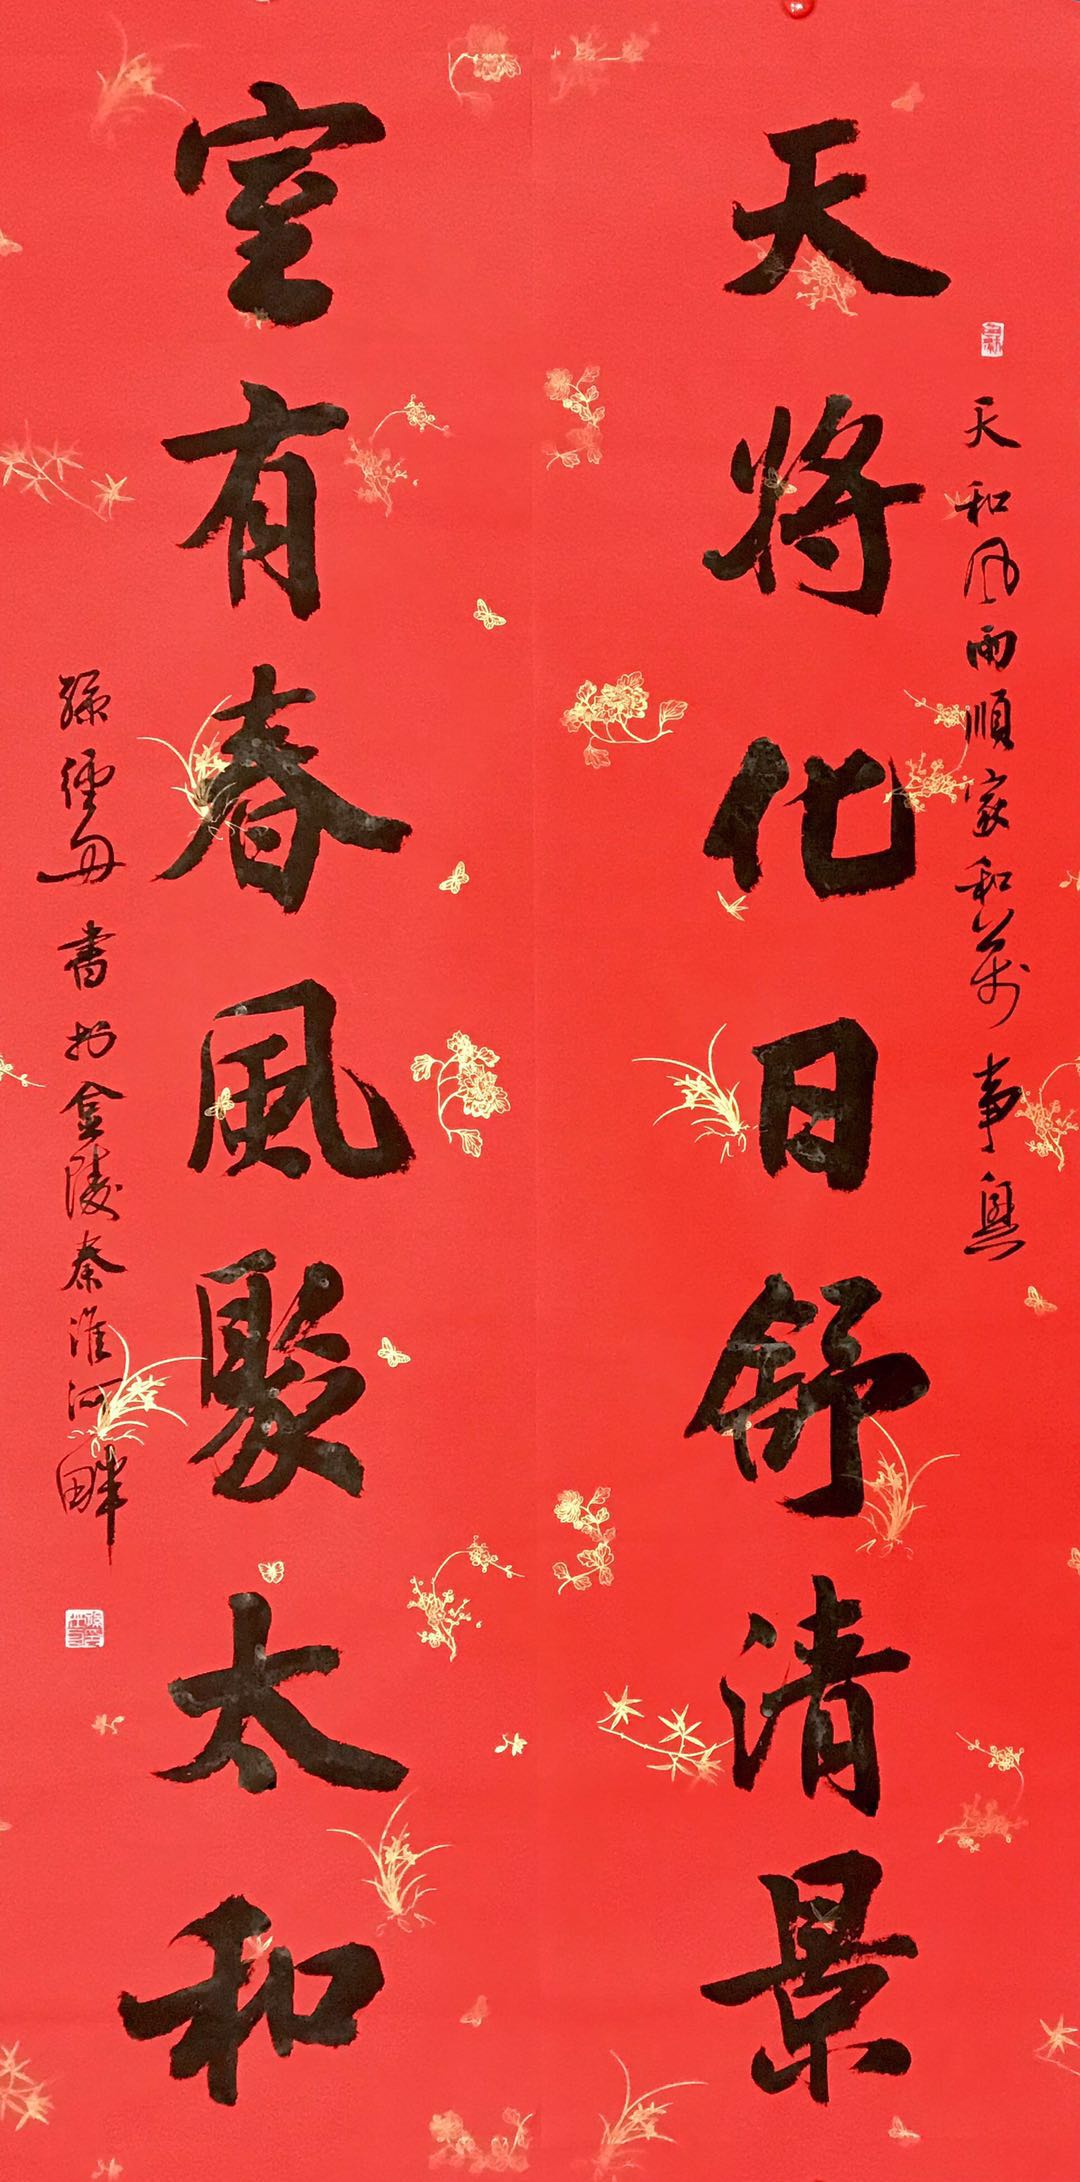 天和风雨順家和萬事興
天將化日舒清景
室有春風聚太和
孫書於金陵秦淮河畔